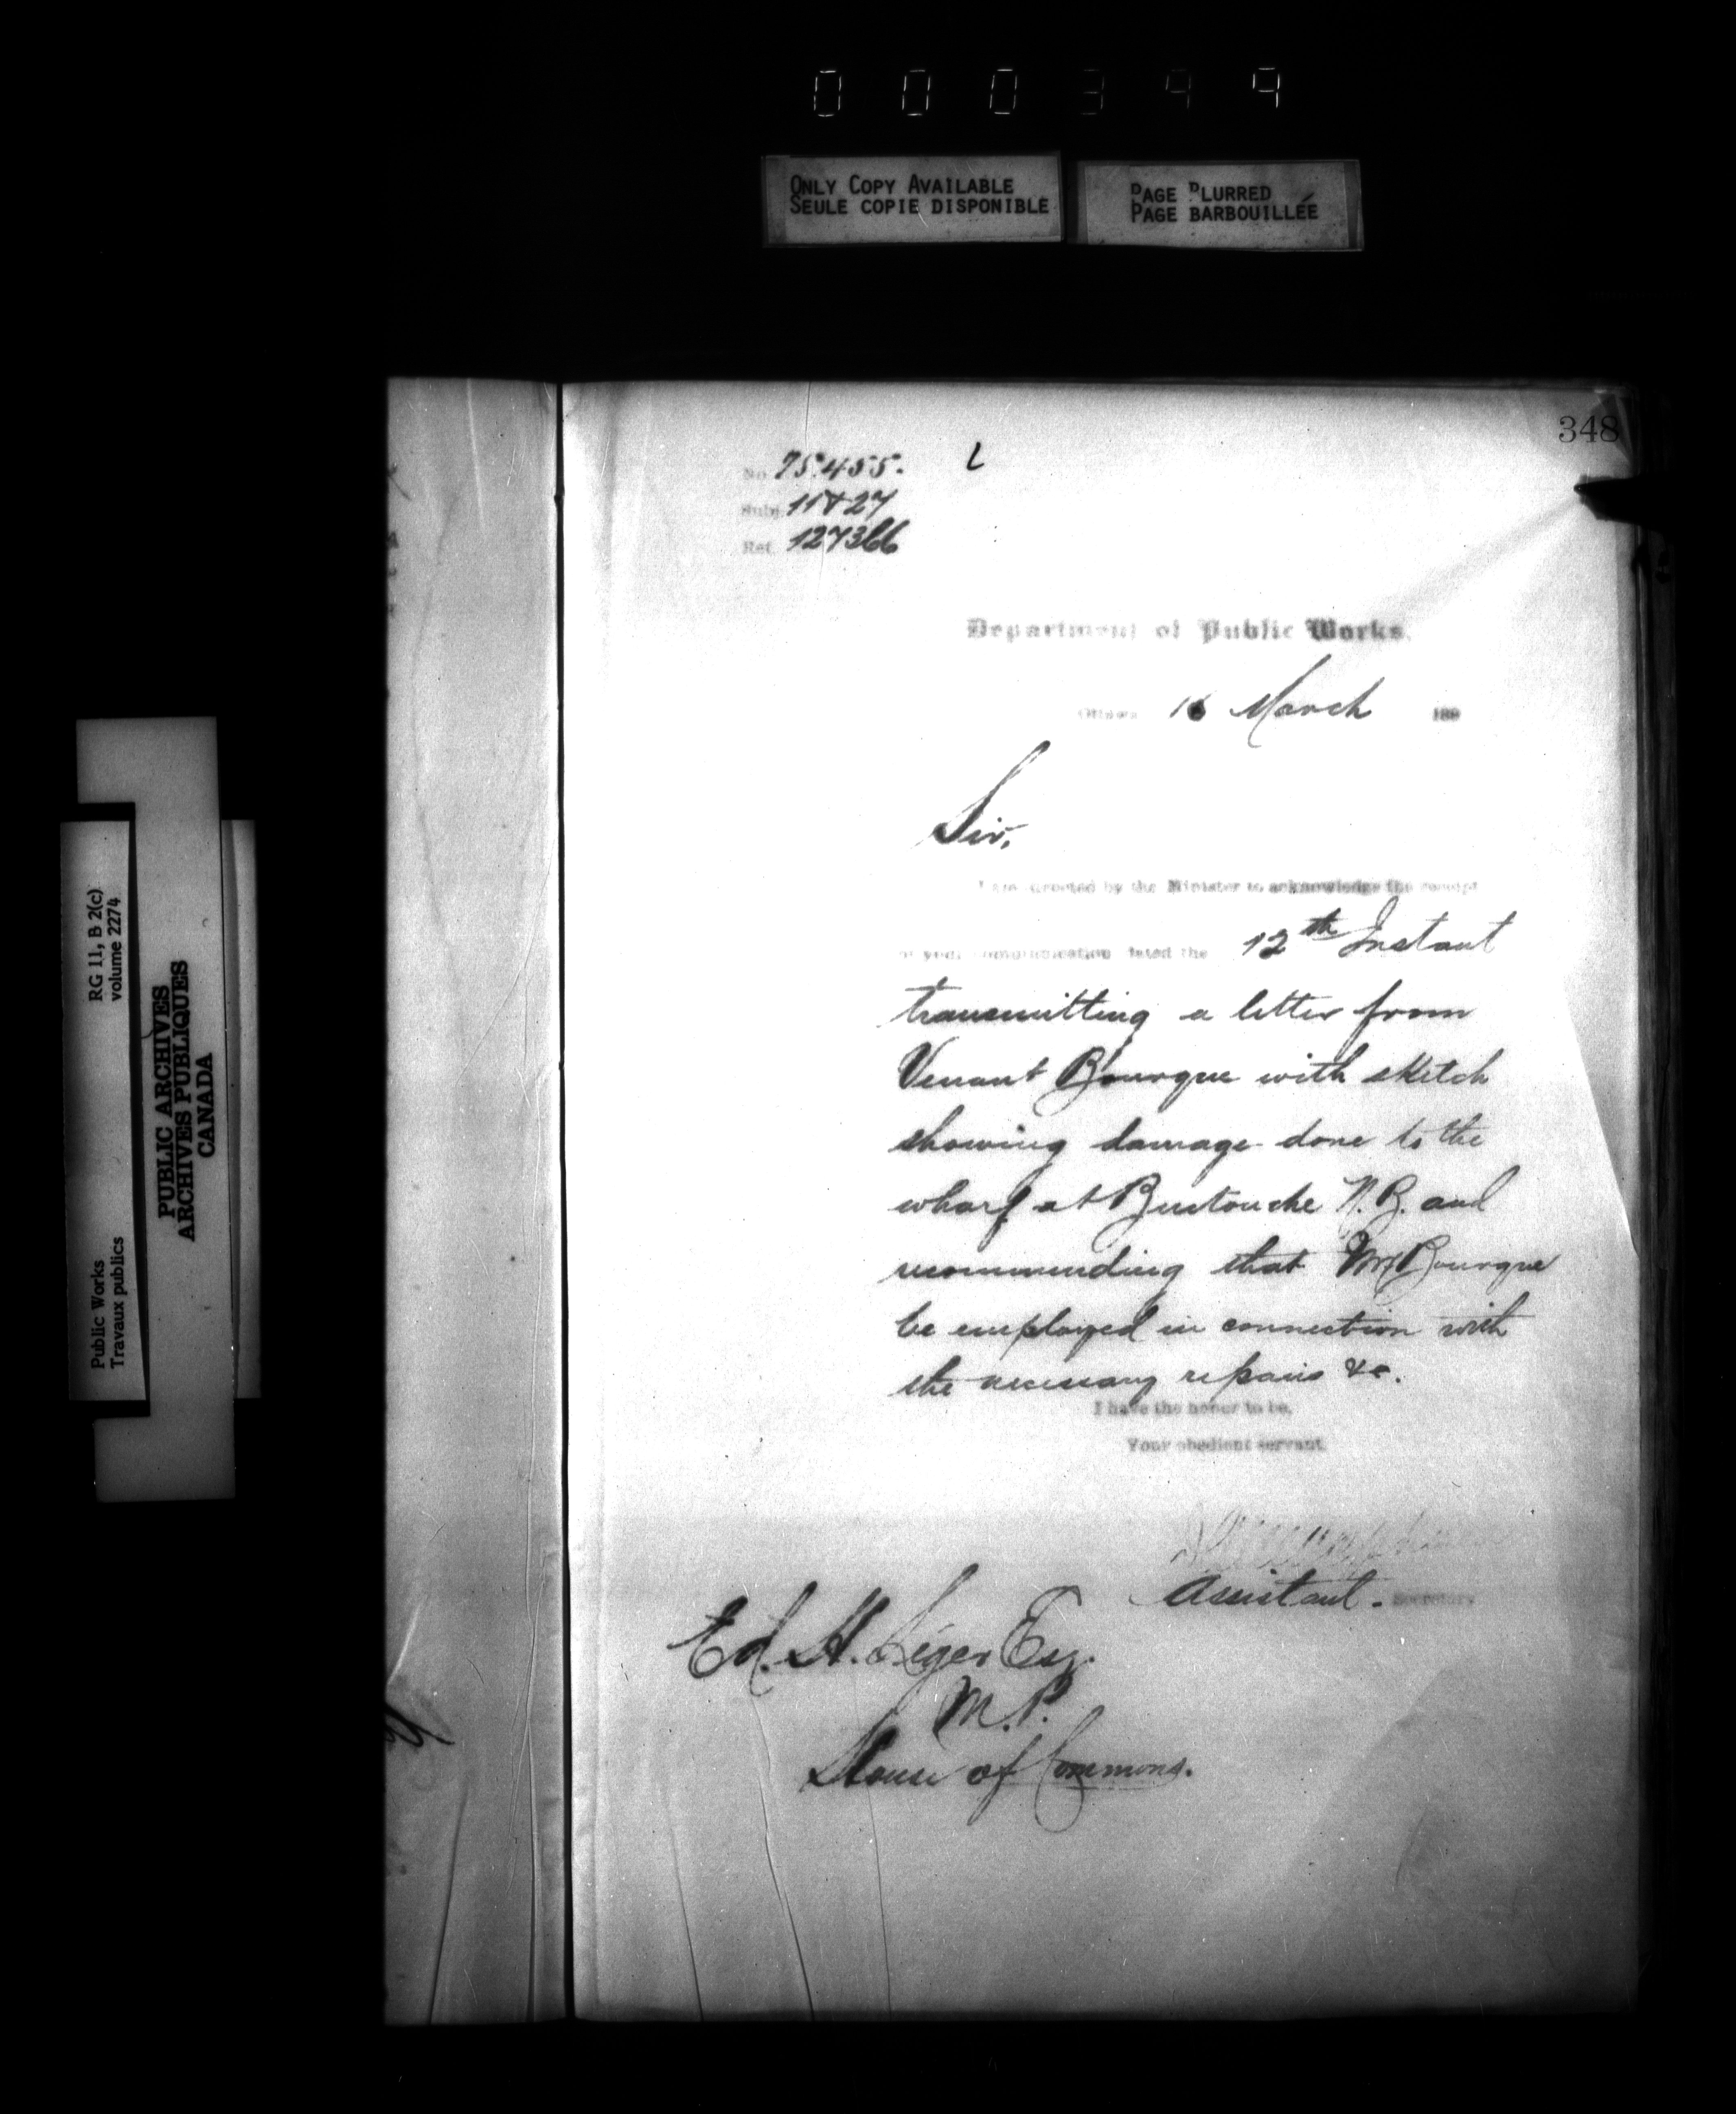 000399
ONLY COPY AVAILABLE
SEULE COPIE DISPONIBLE
PAGE BLURRED
PAGE BARBOUILLÉE
348
No. 75455.
L
Subj. 11 & 27
Ref. 127366
Department of Public Works.
Ottawa 16 March 189
Sir,
I am directed by the Minister to acknowledge the receipt
of your communication dated the 12th Instant
transmitting a letter from
Venant Bourque with sketch
showing damage done to the
wharf at Buctouche N.B. and
recommending that Mr Bourque
be employed in connection with
the necessary repairs &c.
I have the honor to be,
Your obedient servant,
Assistant. Secretary
Ed. H. Léger Esq.
M.P.
House of Commons.
RG 11, B 2(c)
volume 2274
Public Works
Travaux publics
PUBLIC ARCHIVES
ARCHIVES PUBLIQUES
CANADA